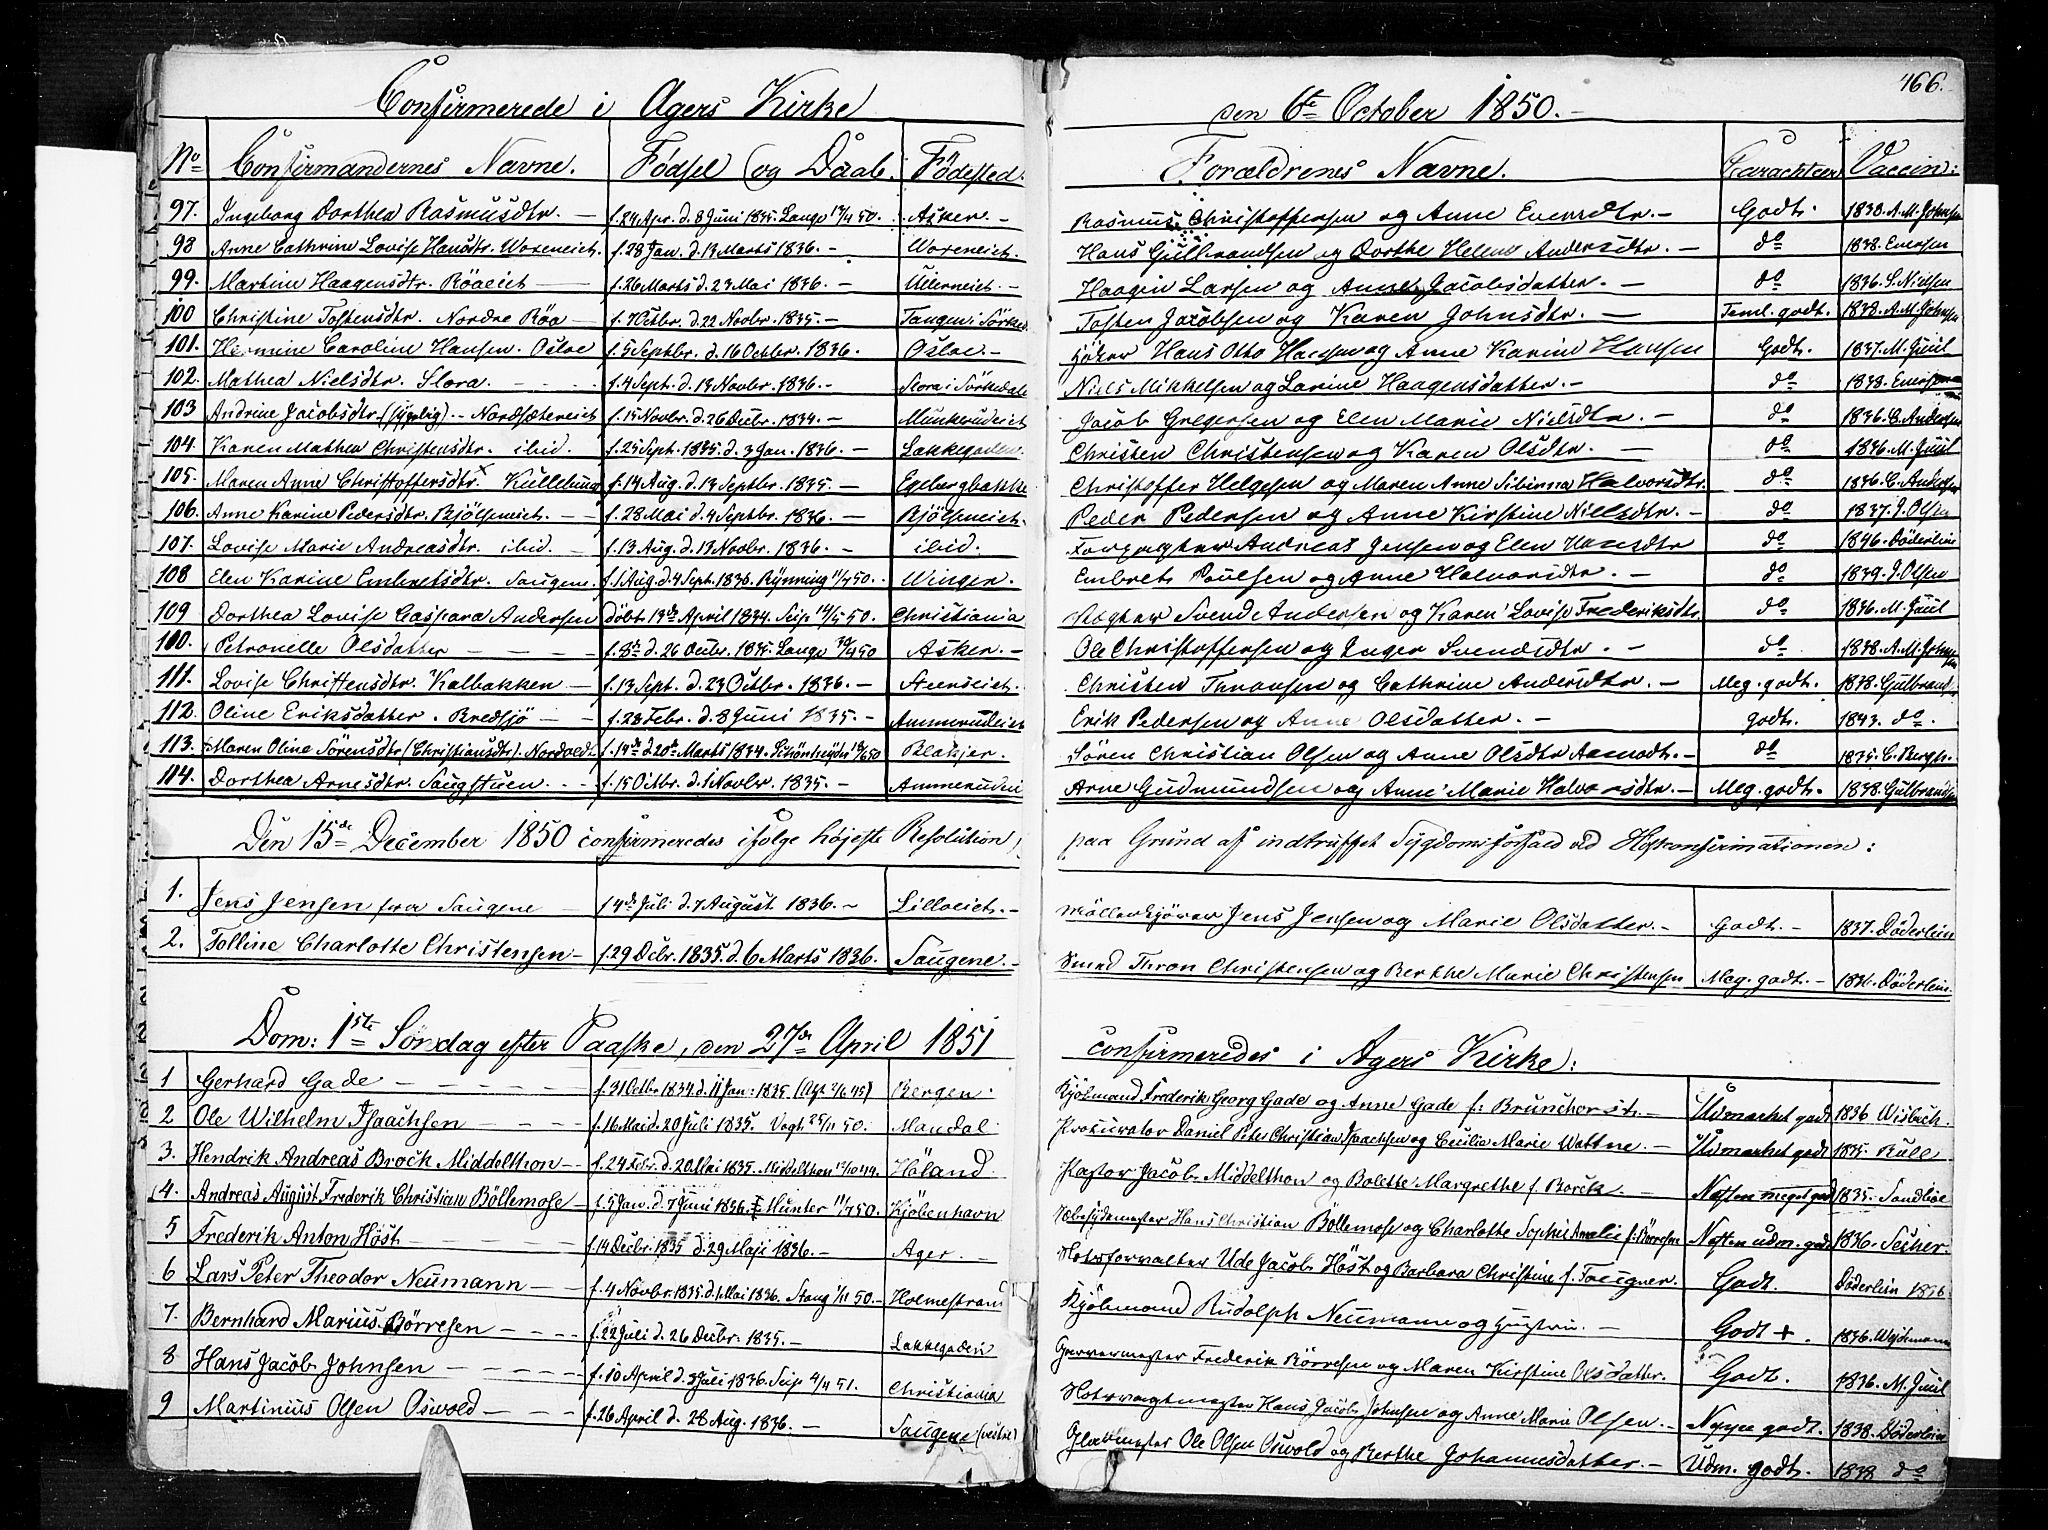 466.
Confirmerede i Agers Kirke den 6te October 1850.-
No Confirmandernes Navne. Födsel og Daab. Födested. Forældrenes Navne. Carachteer Vaccin:
97. Ingeborg Dorthea Rasmusdtr. - f. 24 Apr. d. 8 Juni 1835. Lange 17/4 50. Asker. - Rasmus Christoffersen og Anne Eversdtr. - Godt. 1838. A. M. Johnsen
98 Anne Cathrine Lovise Hansdtr. Woxeneiet. f. 28 Jan. d. 13 Marts 1836. - Woxeneiet. Hans Gulbrandsen og Dorthe Helene Andersdtr. - do 1838. Eversen
99. Martine Haagensdtr. Röaeiet - f. 26 Marts d. 23 Mai 1836. - Ullerneiet. - Haagen Larsen og Anne Jacobsdatter. - do 1836. S. Nielsen
100 Christine Tostensdtr. Nordre Röa - f. 7 Octbr. d. 22 Novbr. 1835. - Tangen i Sörked. Tosten Jacobsen og Karen Johnsdtr. - Teml. godt. 1838. A. M. Johnsen
101. Hermine Caroline Hansen. Osloe f. 5 Septbr. d. 16 Octbr. 1836. Osloe. - Höker Hans Otto Hansen og Anne Karine Hansen Godt. 1837. M. Juul
102. Mathea Nielsdtr. Slora. - f. 4 Sept. d. 13 Novbr. 1836. - Slora i Sörkedal Niels Mikkelsen og Larine Haagensdatter. - do 1838. Eversen
103 Andrine Jacobsdtr (sygelig) - Nordsætereiet f. 15 Novbr. d. 26 Decbr. 1834. - Munkerudeiet Jacob Gregersen og Elen Marie Nielsdtr. - do 1836. C. Andersen
104. Karen Mathea Christensdtr. ibid. f. 25 Sept. 1835. d. 3 Jan. 1836. - Lakkegaden. Christen Christensen og Karen Olsdtr. - do 1836. M. Juul
105. Maren Anne Christoffersdtr. Kullebund f. 14 Aug. d. 13 Septbr. 1835. - Egebergbakken Christoffer Helgesen og Maren Anne Sibinna Halvorsdtr. do 1836. C. Andersen
106. Anne Karine Pedersdtr. Bjölseneiet. - f. 28 Mai d. 4 Septbr. 1836. - Bjölseneiet. Peder Pedersen og Anne Kirstine Nielsdtr. - do 1837. J. Olsen
107. Lovise Marie Andreasdtr. ibid. - f. 13 Aug. d. 13 Novbr. 1836. - ibid. Forpagter Andreas Jensen og Elen Hansdtr do 1846. Döderlein
108 Elen Karine Embretsdtr. Saugene. f. 1 Aug. d. 4 Sept. 1836. Rynning 11/4 50. Winger. Embret Poulsen og Anne Halvorsdtr. - do 1839. J. Olsen
109 Dorthea Lovise Caspara Andersen döbt 13de April 1834. Seip 14/5 50. Christiania Svend Andersen og Karen Lovise Frederiksdtr. do 1836. M. Juul
100. Petronelle Olsdatter - f. 8de d. 26 Octbr. 1835. Lange 30/4 50 Asker. - Ole Christoffersen og Inger Svendsdtr. - do 1838. A. M. Johnsen
111. Lovise Christensdtr. Kalbakken - f. 13 Sept. d. 23 Octbr. 1836. - Steenseiet. Christen Thronsen og Cathrine Andersdtr. - Meg. godt. 1838. Gulbrandsen
112. Oline Eriksdatter. Bredsjö - f. 28 Febr. d. 8 Juni 1835. - Ammerudeiet Erik Pedersen og Anne Olsdatter. - godt. 1843. do.
113. Maren Oline Sörensdtr (Christiansdtr). Nordvedt f. 14de d 20de Marts 1834. Schönheyder 19/6 50 Blakjer. Sören Christian Olsen og Anne Olsdtr Aamodt. - do 1835. C. Bergh.
114. Dorthea Arnesdtr. Saugstuen. - f. 15 Octbr. d. 1 Novbr. 1835. - Ammerudei Arne Gudmundsen og Anne Marie Halvorsdtr. - Meg. godt. 1838. Gulbrandsen
Den 15de December 1850 confirmeredes ifølge højeste Resolution, paa Grund af indtruffet Sygdomsforfald ved Höstkonfirmationen:
1. Jens Jensen fra Saugene - 14de Juli d. 7 August 1836. - Lilloeiet. - Möllerkjörer Jens Jensen og Marie Olsdatter. - Godt. - 1837. Döderlein
2. Tolline Charlotte Christensen - f. 29 Decbr. 1835. d. 6 Marts 1836. Saugene. - Smed Thron Christensen og Berthe Marie Christensen Meg. godt. - 1836. Döderlein.
Dom: 1ste Söndag efter Paaske, den 27de April 1851 confirmeredes i Agers Kirke:
1 Gerhard Gade - f. 31 Octbr 1834. d. 11 Jan: 1835 Bergen. Kjöbmand Frederik Georg Gade og Anne Gade f: Brunchorst. - Udmærket godt 1836 Wisbech.
2 Ole Wilhelm Isaachsen - f. 16 Mai d. 20 Juli 1835. Vogt 25/11 50. Mandal. Prokurator Daniel Peter Christian Isaachsen og Cecilia Marie Wattne. - Udmærket godt 1835. Kull
3. Hendrik Andreas Brock Middelthon - f. 24 Febr. d. 20 Mai 1835. Middelthon 12/10 49. Höland. Pastor Jacob Middelthon og Bolette Margrethe f. Borck. - Næsten meget godt 1835. Sandboe
4. Andreas August Frederik Christian Böllemose - f. 5 Jan. d. 7 Juni 1836. Münter 11/7 50. Kjöbenhavn Hans Christian Böllemose og Charlotte Sophie Amalie f. Börresen Næsten udm. godt 1836. Secher.
5 Frederik Anton Höst - f. 14 Decbr. 1835 d. 29 Maji 1836. - Ager. - Ude Jacob Höst og Barbara Christine f. Fougner. Godt. Döderlein 1836
6 Lars Peter Theodor Neumann - f. 4 Novbr. 1835. d. 1 Mai 1836. Stang 1/11 50. - Holmestrand Kjöbmand Rudolph Neumann og Hustru. - Godt +. 1836. Weidemann
7. Bernhard Marius Börresen - f. 22 Juli d. 26 Decbr: 1835. - Lakkegaden Garvermester Frederik Börresen og Maren Kirstine Olsdatter. Godt. 1836. M. Juul
8 Hans Jacob Johnsen - f. 10 April d. 3 Juli 1836. Seip 4/4 51. Christiania Hans Jacob Johnsen og Anne Marie Olsen. - Neppe godt. 1838. Döderlein
9 Martinius Olsen Oswold - f. 26 April d. 28 Aug. 1836. - Saugene (vestre) Glasmester Ole Olsen Oswold og Berthe Johannesdatter. - Udm. godt. 1838 do